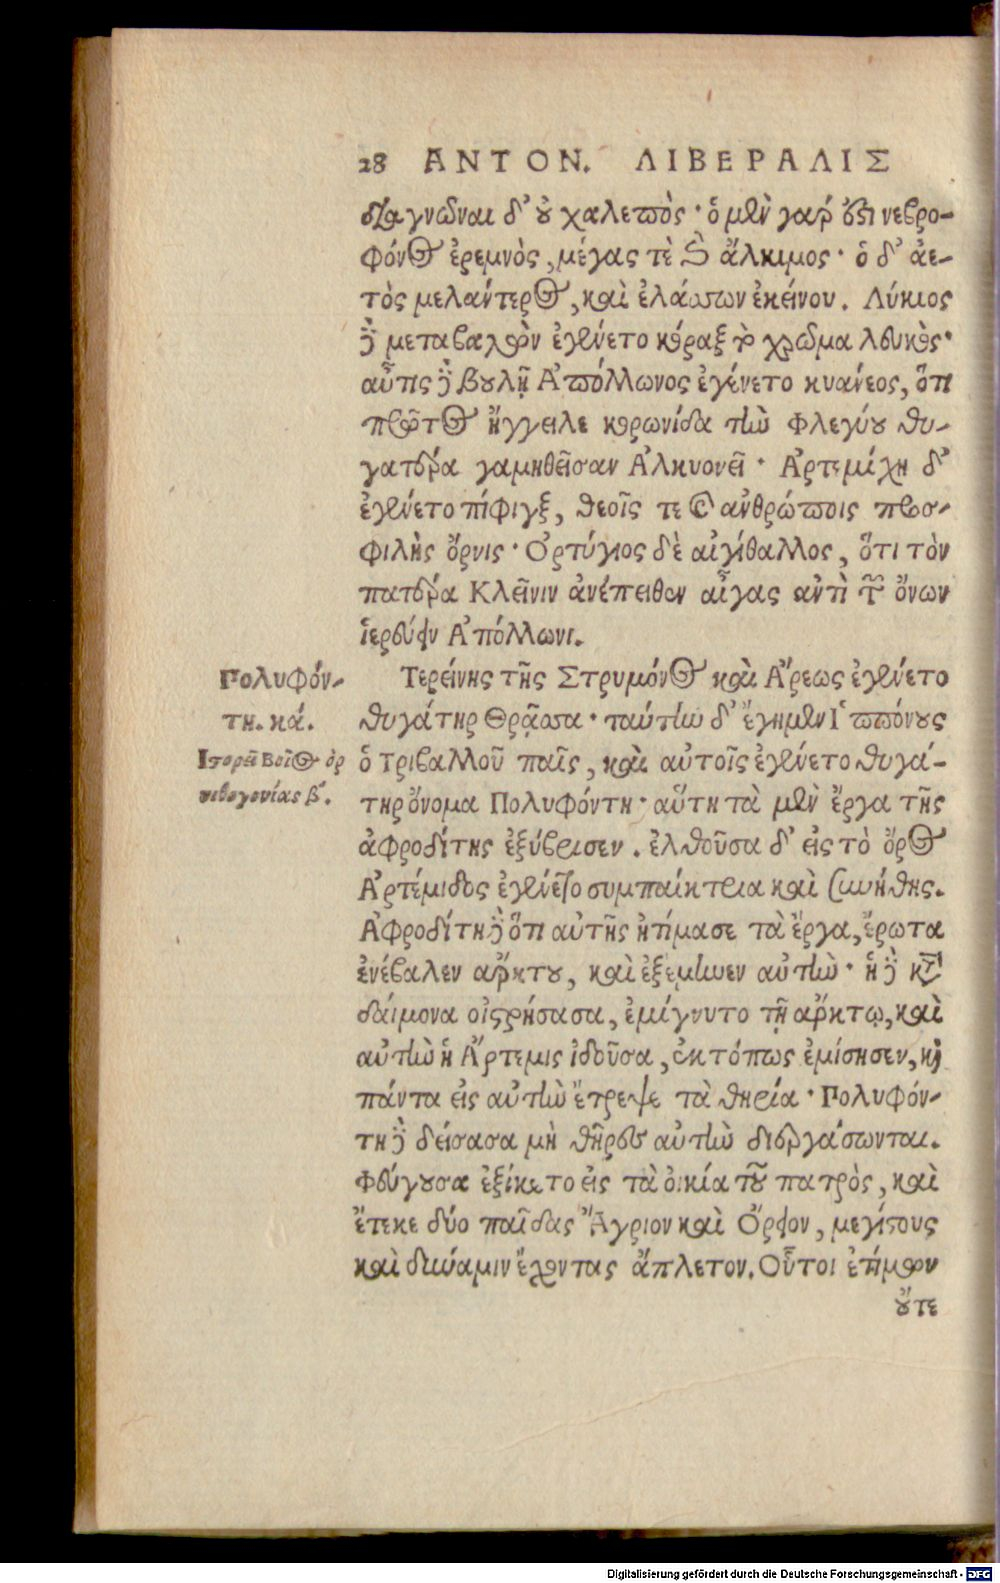 28 ΑΝΤΟΝ. ΛΙΒΕΡΑΛΙΣ
διαγνῶναι δ' οὐ χαλεπὸς· ὁ μὲν γάρ ἐστι νεβρο-
φόνος ἐρεμνὸς, μέγας τὲ καὶ ἄλκιμος· ὁ δ' ἀε-
τὸς μελάντερος, καὶ ἐλάσσων ἐκείνου. Λύκιος
δὲ μεταβαλὼν ἐγένετο κόραξ τὸ χρῶμα λευκὸς·
αὖτις δὲ βουλῇ Ἀπόλλωνος ἐγένετο κυάνεος, ὅτι
πρῶτος ἤγγειλε κορωνίδα τὴν Φλεγύου θυ-
γατέρα γαμηθεῖσαν Ἀλκυονεῖ· Ἀρτεμίχη δ'
ἐγένετο πίφιγξ, θεοῖς τε καὶ ἀνθρώποις προσ-
φιλὴς ὄρνις· Ὀρτύγιος δὲ αἰγίθαλλος, ὅτι τὸν
πατέρα Κλεῖνιν ἀνέπειθεν αἶγας ἀντὶ τῶν ὄνων
ἱερεύειν Ἀπόλλωνι.
Πολυφόν-
τη. κά.
Ἱστορεῖ Βοῖος ὀρ
νιθογονίας β΄.
Τερείνης τῆς Στρυμόνος καὶ Ἄρεως ἐγένετο
θυγάτηρ Θρᾷσσα· ταύτην δ' ἔγημεν Ἱππόνους
ὁ Τριβαλλοῦ παῖς, καὶ αὐτοῖς ἐγένετο θυγά-
τηρ ὄνομα Πολυφόντη· αὕτη τὰ μὲν ἔργα τῆς
ἀφροδίτης ἐξύβρισεν. ἐλθοῦσα δ' εἰς τὸ ὄρος
Ἀρτέμιδος ἐγένετο συμπαίκτρια καὶ συνήθης.
Ἀφροδίτη δὲ ὅτι αὐτῆς ἠτίμασε τὰ ἔργα, ἔρωτα
ἐνέβαλεν ἄρκτου, καὶ ἐξέμηνεν αὐτὴν· ἡ δὲ κατὰ
δαίμονα οἰστρήσασα, ἐμίγνυτο τῇ ἄρκτῳ, καὶ
αὐτὴν ἡ Ἄρτεμις ἰδοῦσα, ἐκτόπως ἐμίσησεν, καὶ
πάντα εἰς αὐτὴν ἔτρεψε τὰ θηρία· Πολυφόν-
τη δὲ δείσασα μὴ θῆρες αὐτὴν διεργάσωνται.
Φεύγουσα ἐξίκετο εἰς τὰ οἰκία τοῦ πατρὸς, καὶ
ἔτεκε δύο παῖδας Ἄγριον καὶ Ὄρειον, μεγίστους
καὶ δύναμιν ἔχοντας ἄπλετον. Οὗτοι ἐτίμων
οὔτε
Digitalisierung gefördert durch die Deutsche Forschungsgemeinschaft - DFG